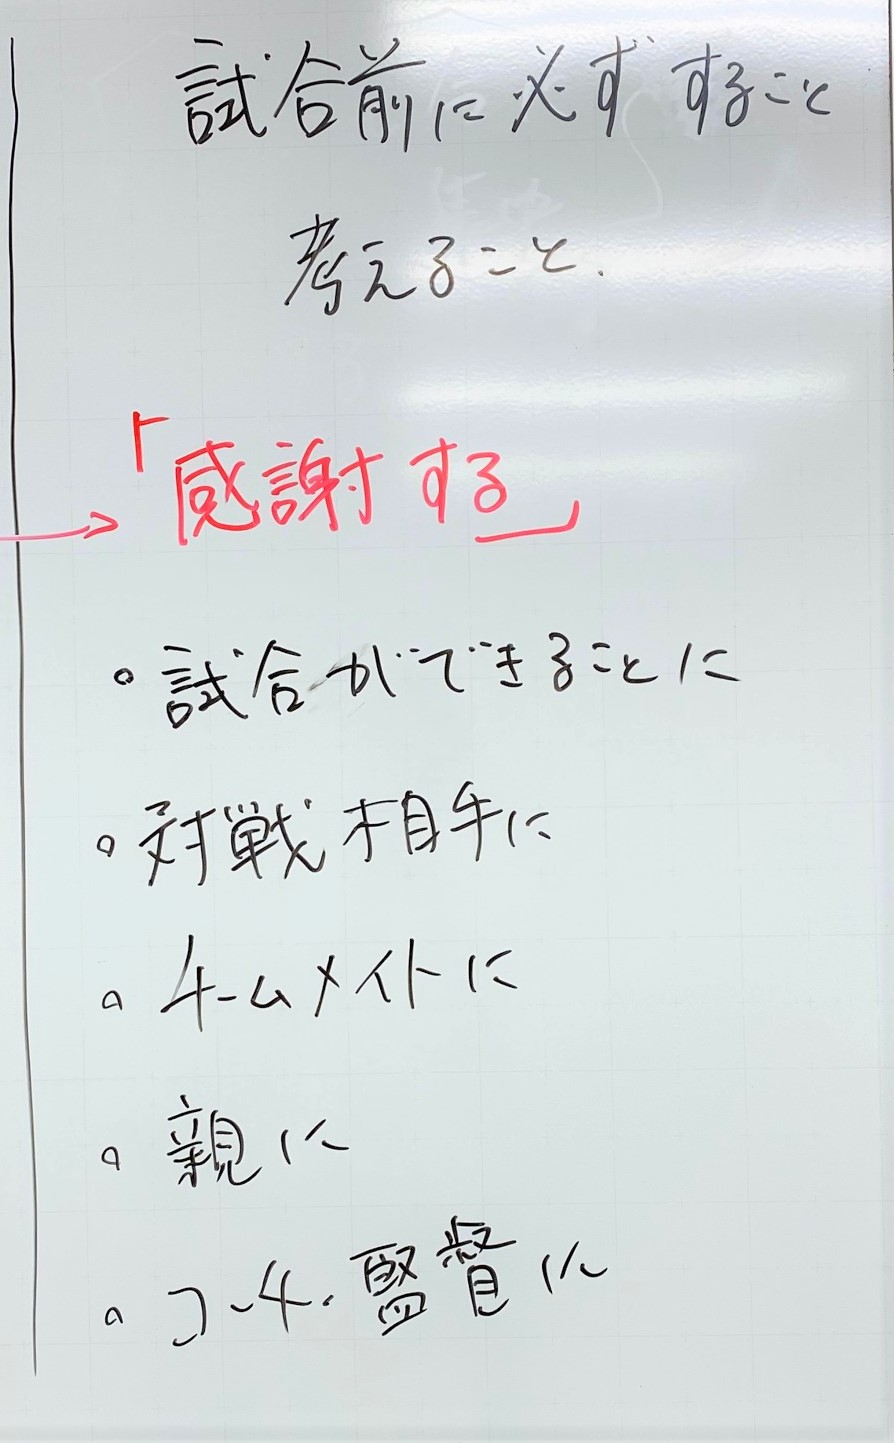 試合前に必ずすること
考えること.
「感謝する」
→
。試合ができることに
。対戦相手に
。チームメイトに
。親に
。コーチ.監督に